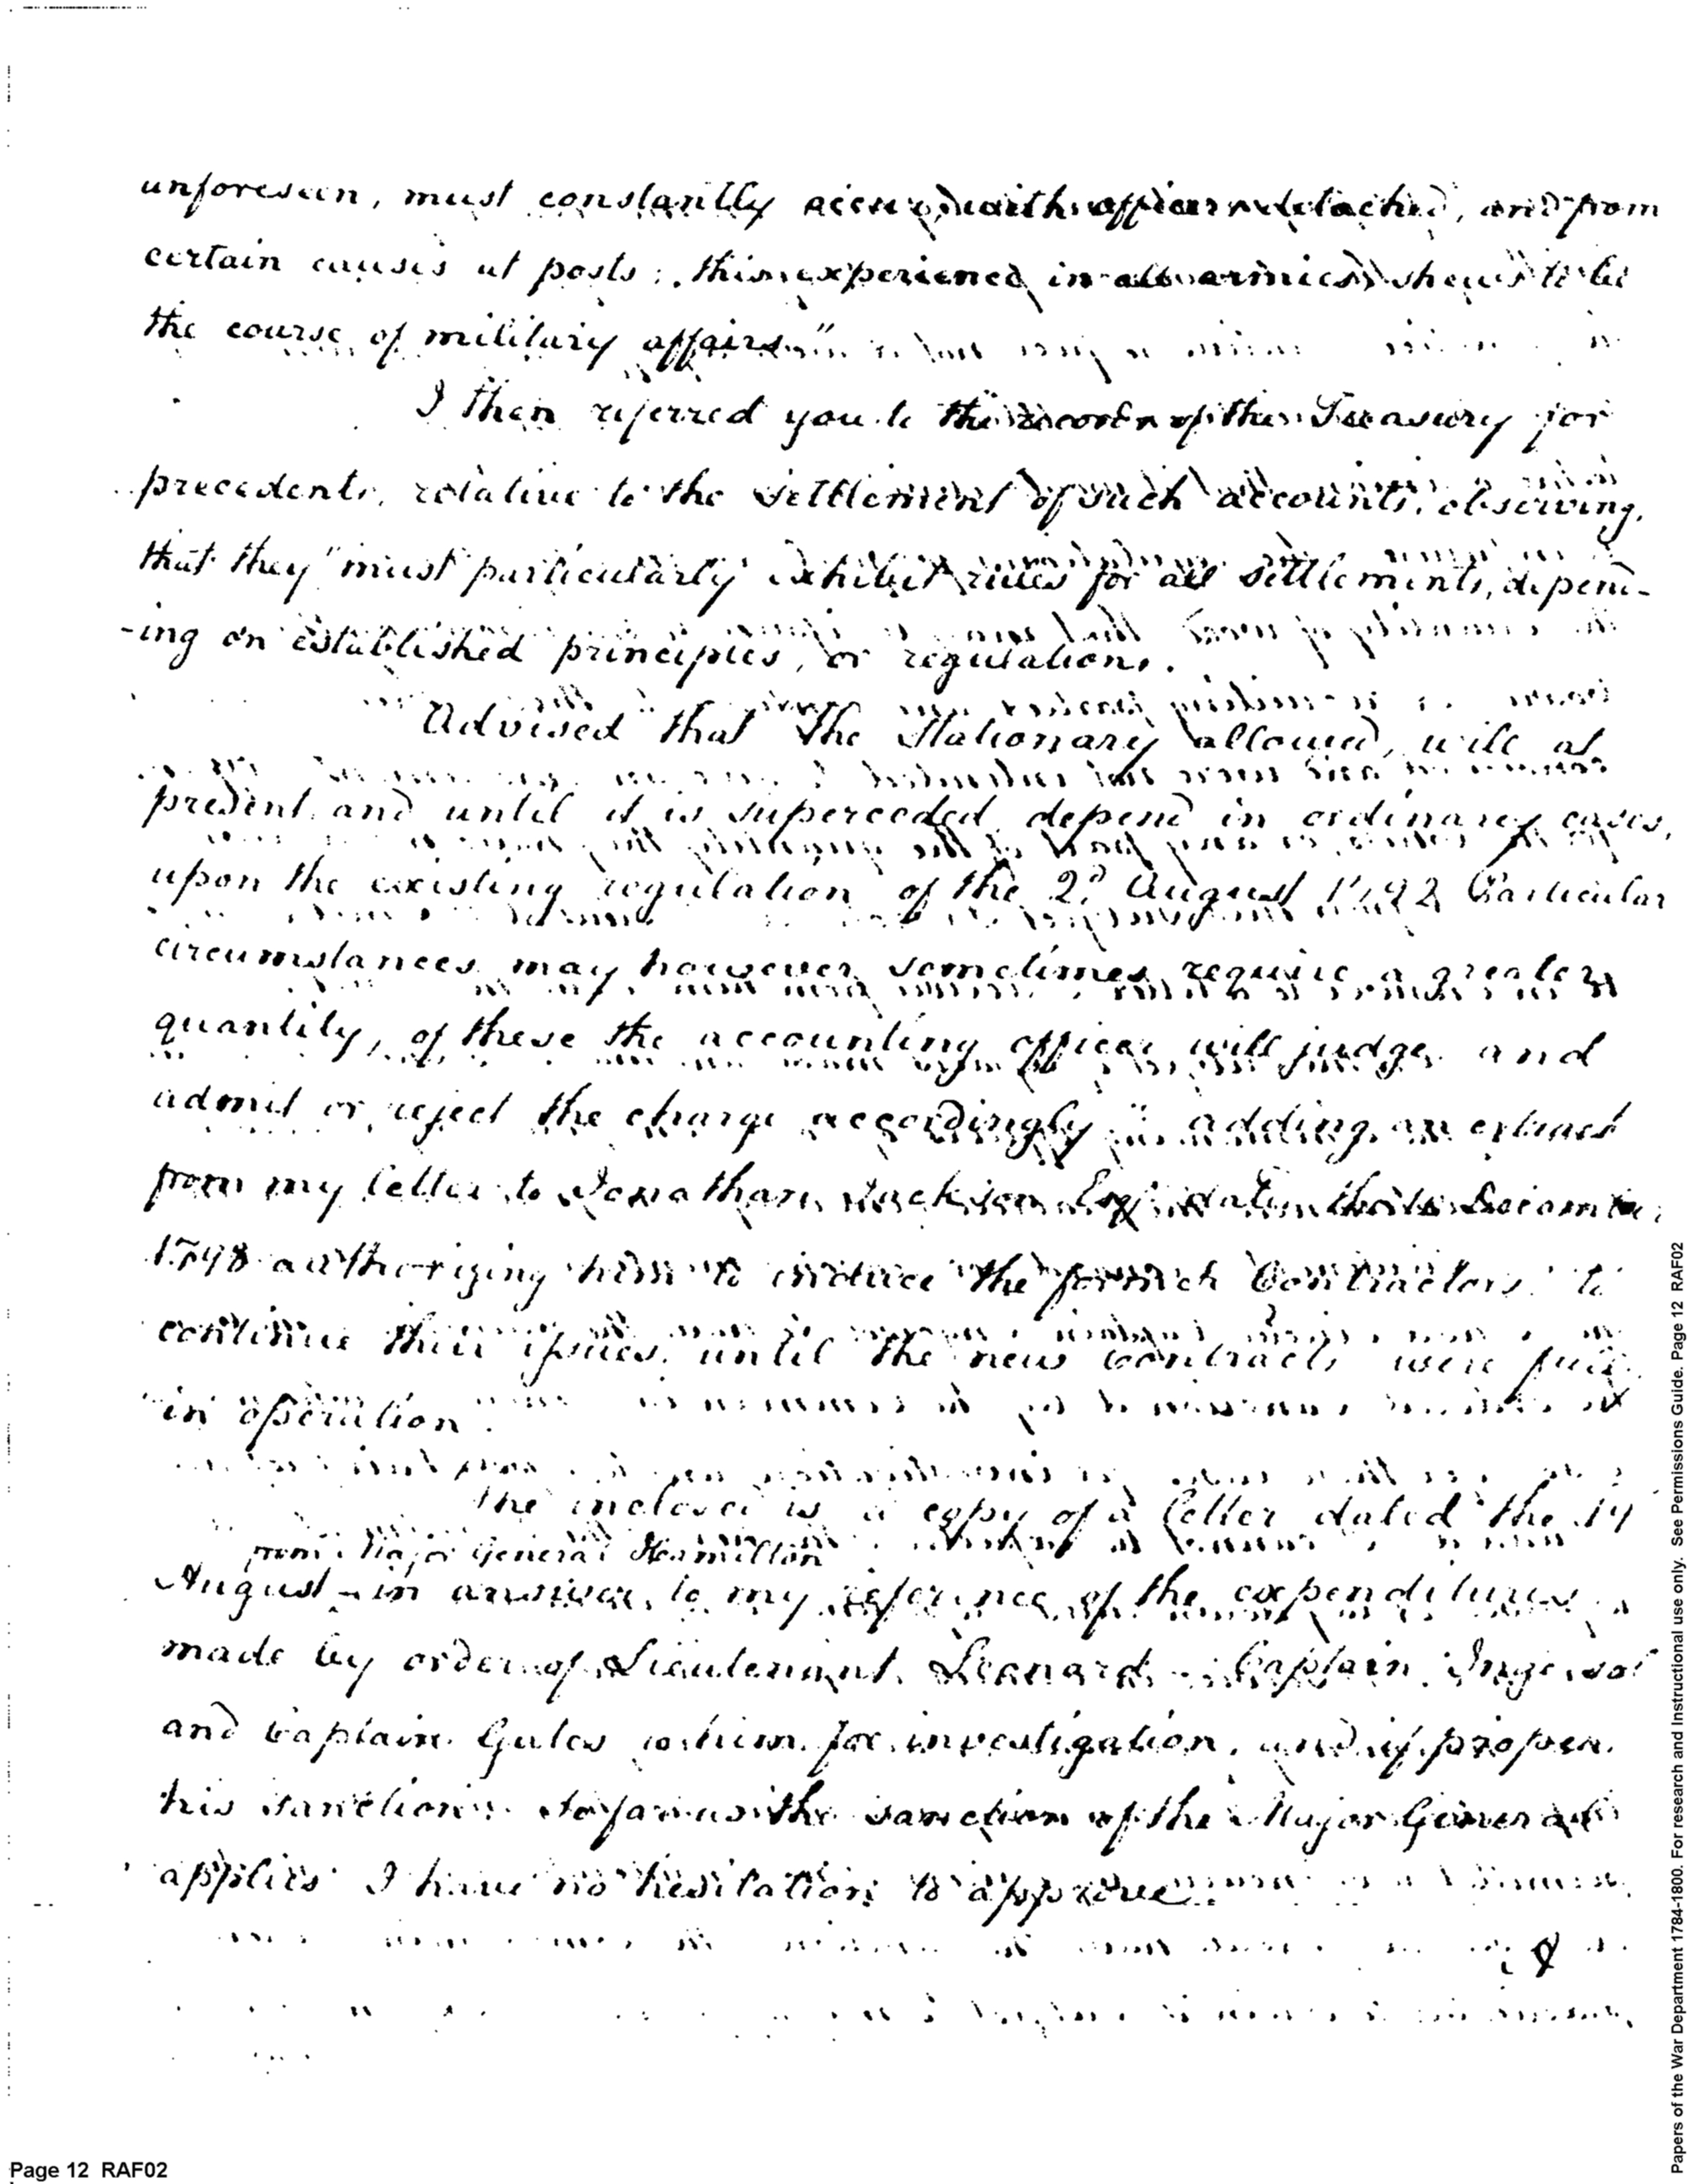 unforeseen, must constantly occur, with officers detached, and from
certain causes at posts; this experience, in all armies, shews to be
the course of military affairs."
I then referred you to the records of the Treasury for
precedents, relative to the settlement of such accounts, observing,
that they "must particularly exhibit rules for all settlements, depend-
-ing on established principles, or regulations.
Advised that "the Stationary allowed, will at
present and until it is superceded depend in ordinary cases,
upon the existing regulation of the 2d August 1798 Particular
circumstances may however sometimes require a greater
quantity, of these the accounting officer will judge and
admit or reject the charge accordingly" adding an extract
from my letter to Jonathan Jackson Esqr dated the December
1798 authorizing him to induce the former Contractors to
continue their issues, until the new contracts were put
in operation.
The inclosed is a copy of a letter dated the 14
from Major General Hamilton
August - in answer to my reference of the expenditures
made by order of Lieutenant Leonard - Captain Ingersol
and Captain Gates to him for investigation, and if proper
his sanction. So far as the sanction of the Major General
applies I have no hesitation to approve
Page 12 RAF02
Papers of the War Department 1784-1800. For research and Instructional use only. See Permissions Guide. Page 12 RAF02